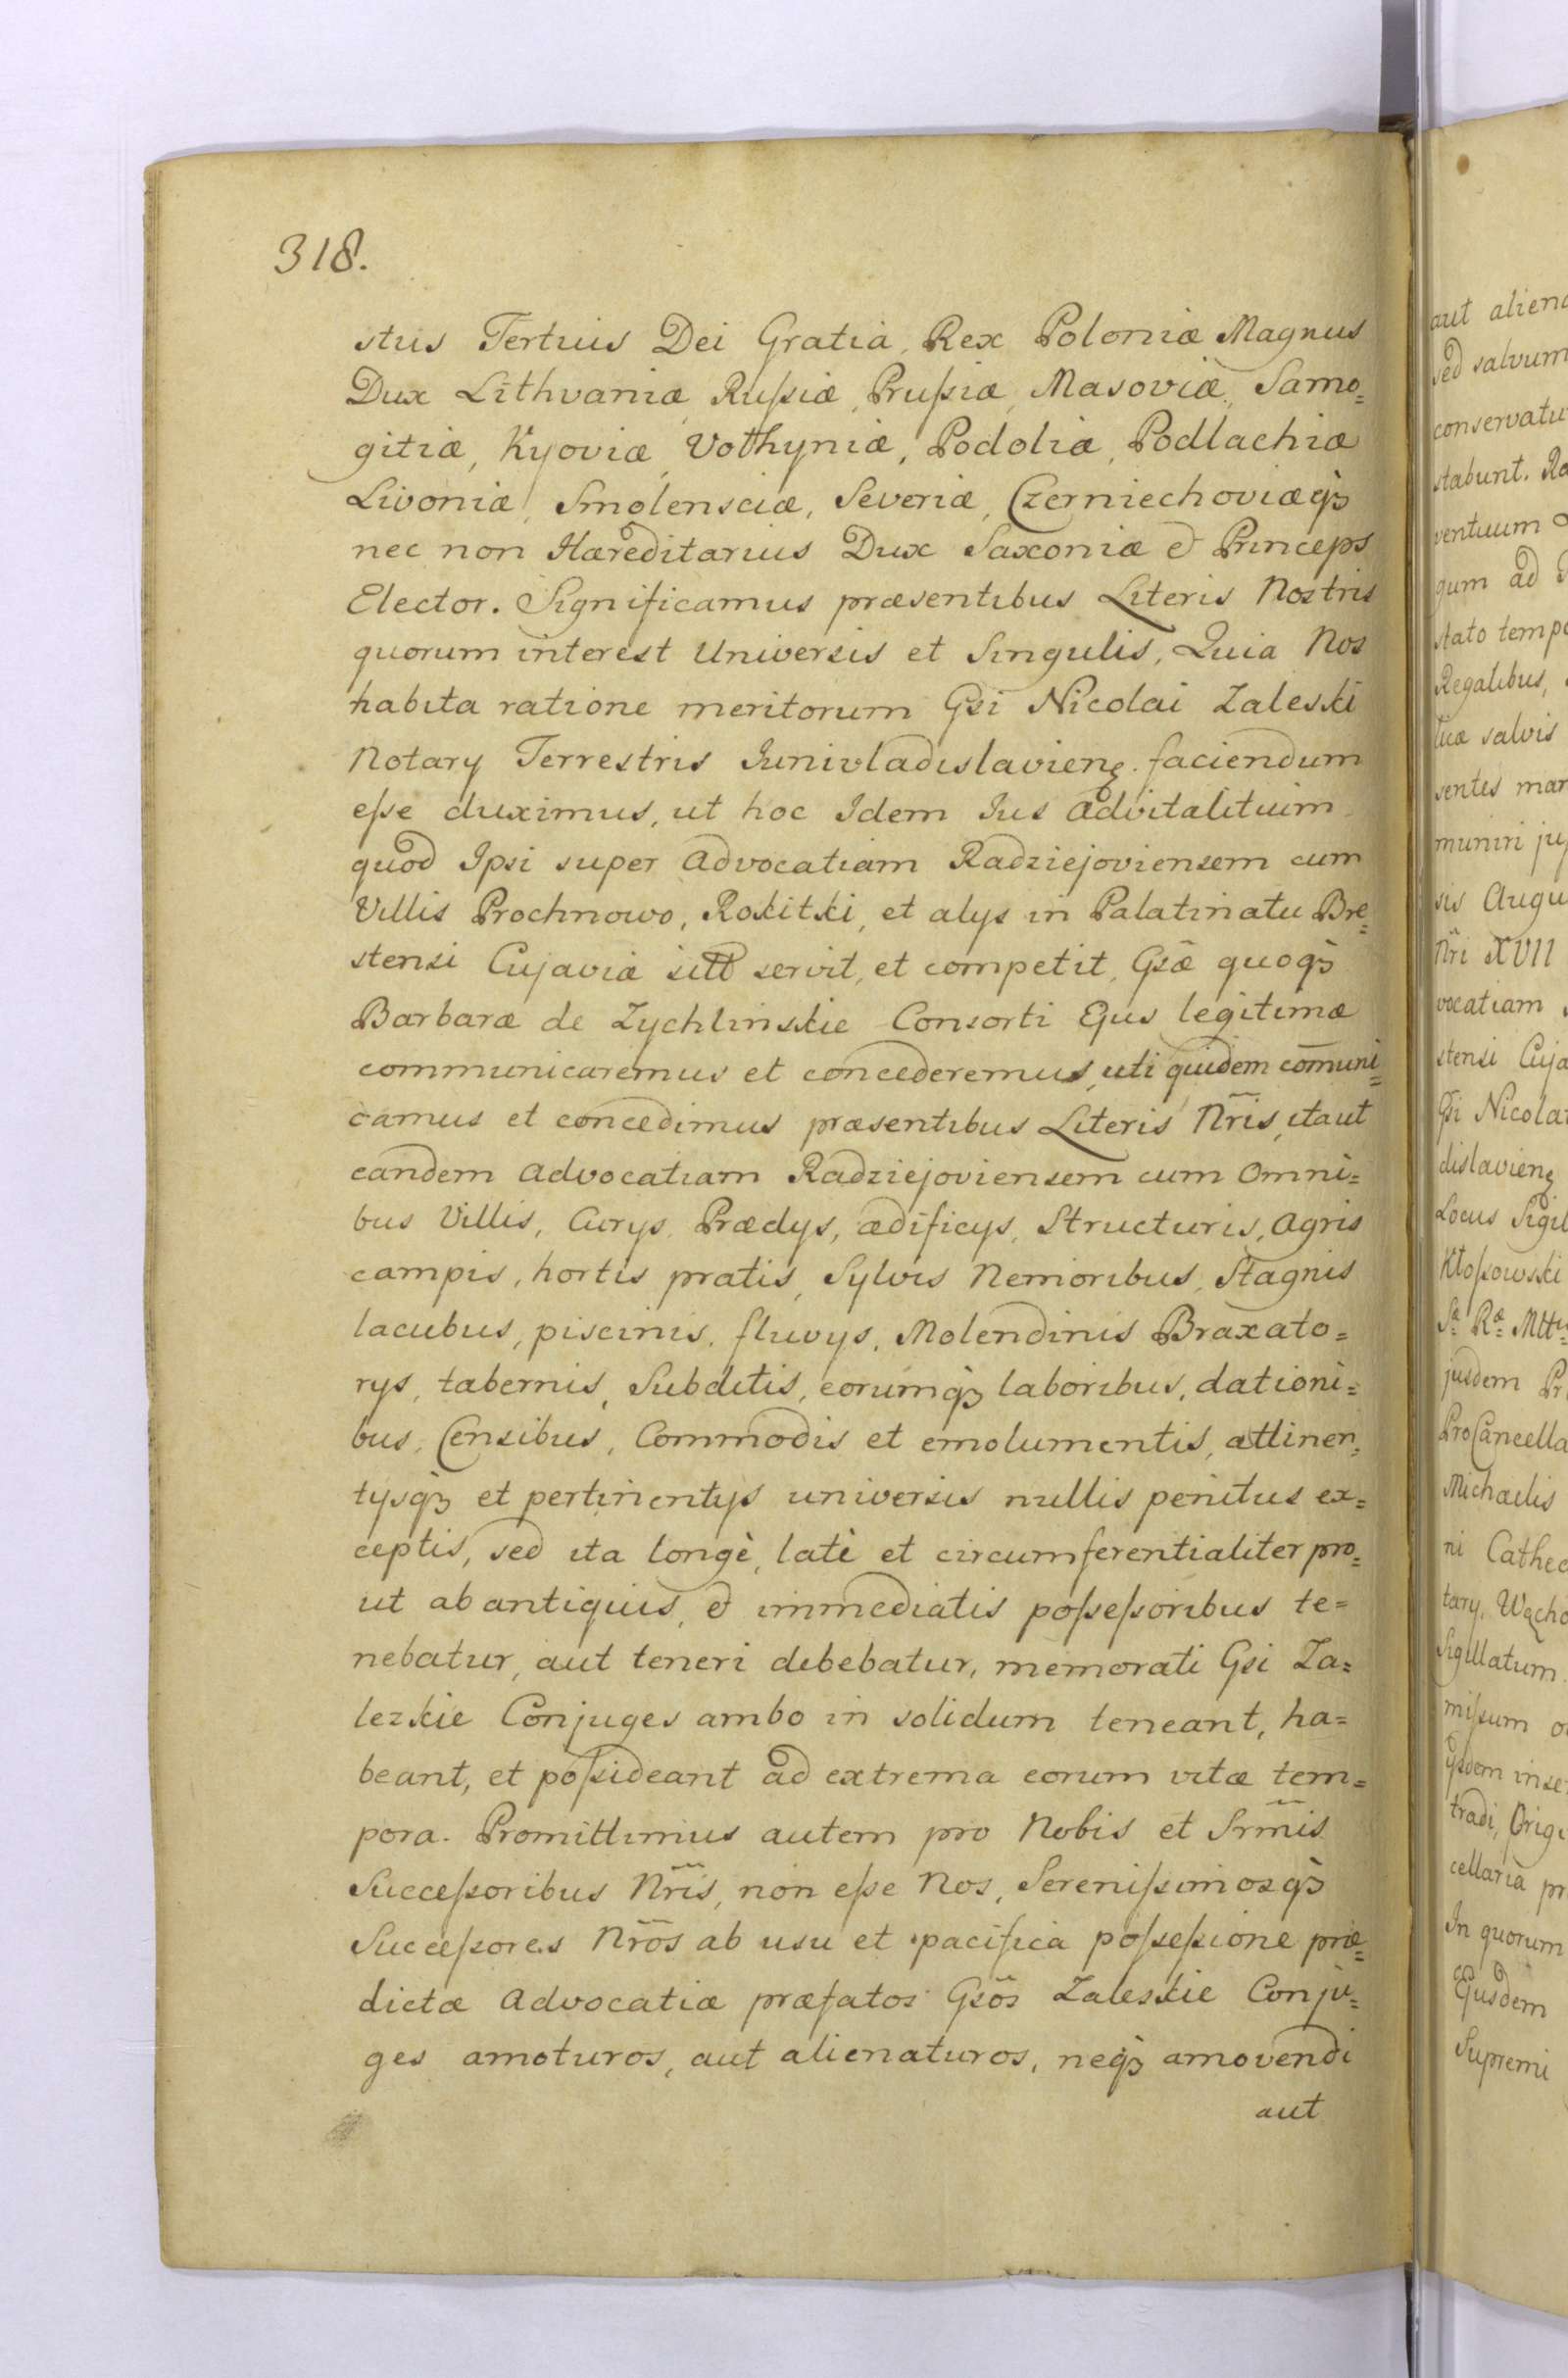 318.
stus Tertius Dei Gratia, Rex Poloniæ Magnus
Dux Lithvaniæ, Rußiæ, Prußiæ, Masoviæ, Samo=
gitiæ, Kyoviæ, Vołhyniæ, Podoliæ, Podlachiæ
Livoniæ, Smolensciæ, Severiæ, Czerniechoviæqꝫ
nec non Hæreditarius Dux Saxoniæ & Princeps
Elector. Significamus præsentibus Literis Nostris
quorum interest Universis et Singulis, Quia Nos
habita ratione meritorum Gsi Nicolai Zaleski
Notary Terrestris Junivladislavienȩ. faciendum
eße duximus, ut hoc Idem Jus advitalitium
quod Ipsi super advocatiam Radziejoviensem cum
Villis Prochnowo, Rokitki, et alys in Palatinatu Bre=
stensi Cujaviæ sitt servit, et competit, Gsæ̃ quoqꝫ
Barbaræ de Zychlinskie Consorti Ejus legitimæ
communicaremus et concederemus, uti quidem com̄uni=
camus et concedimus præsentibus Literis Nr̃is, itaut
eandem advocatiam Radziejoviensem cum Omni=
bus Villis, Curys, Prædys, ædificys, Structuris, agris
campis, hortis pratis, Sylvis Nemoribus, Stagnis
lacubus, piscinis, fluvys, Molendinis Braxato=
rys, tabernis, Subditis, eorumqꝫ laboribus, dationi=
bus, Censibus, Commodis et emolumentis, attinen=
tysqꝫ et pertinentys universis nullis penitus ex=
ceptis, sed ita longè, latè et circumferentialiter pro=
ut ab antiquis, & immediatis poßeßoribus te=
nebatur, aut teneri debebatur, memorati Gsi Za=
leskie Conjuges ambo in solidum teneant, ha=
beant, et poßideant ad extrema eorum vitæ tem=
pora. Promittimus autem pro Nobis et Srm̃is
Succeßoribus Nr̃is, non eße Nos, Serenißimosqꝫ
Succeßores Nr̃os ab usu et pacifica poßeßione præ=
dictæ advocatiæ præfatos Gsõs Zaleskie Conju=
ges amoturos, aut alienaturos, neqꝫ amovendi
aut
aut aliena
sed salvum
conservatu
stabunt. Ra
ventuum
gum ad
stato tempo
Regalibus,
tuæ salvis
sentes man
muniri juß
sis Augu
Nr̃i XVII
vocatiam
stensi Cuja
Gsi Nicolai
dislavienȩ
Locus Sigil
Kłoßowski
Sæ Ræ Mttis
jusdem Pr
ProCancella
Michaelis
ni Cathed
tary, Wącho
Sigillatum
mißum
ysdem inse
tradi, Orig
cellaria pr
In quorum
Ejusdem
Supremi